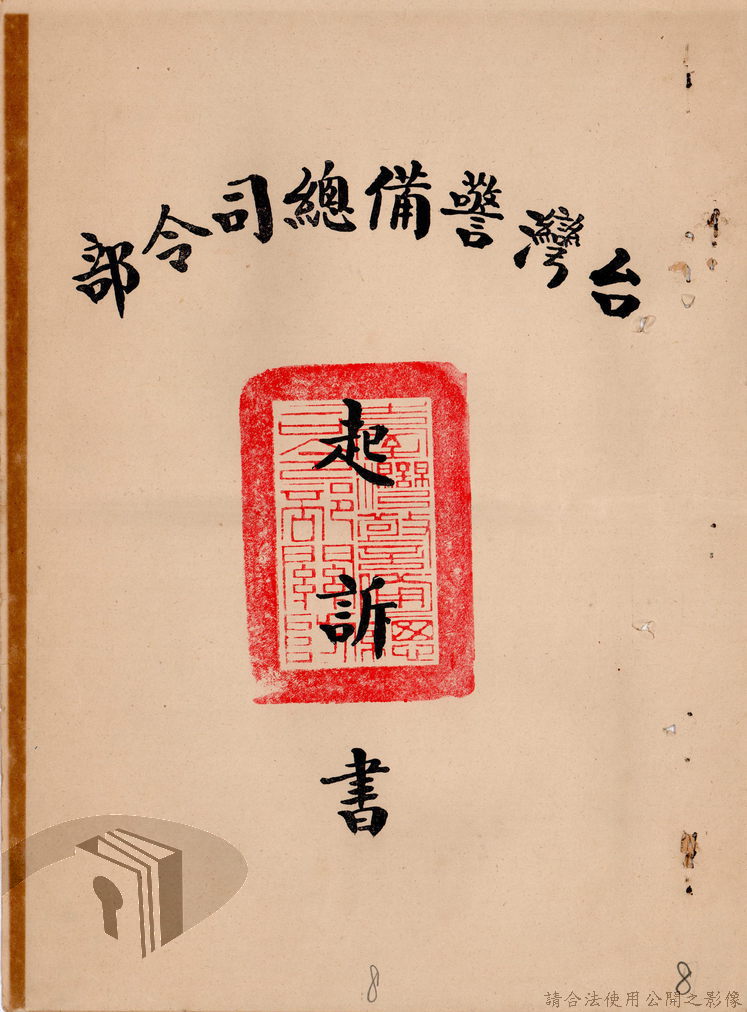 台灣警備總司令部
起訴書
8
8
請合法使用公開之影像